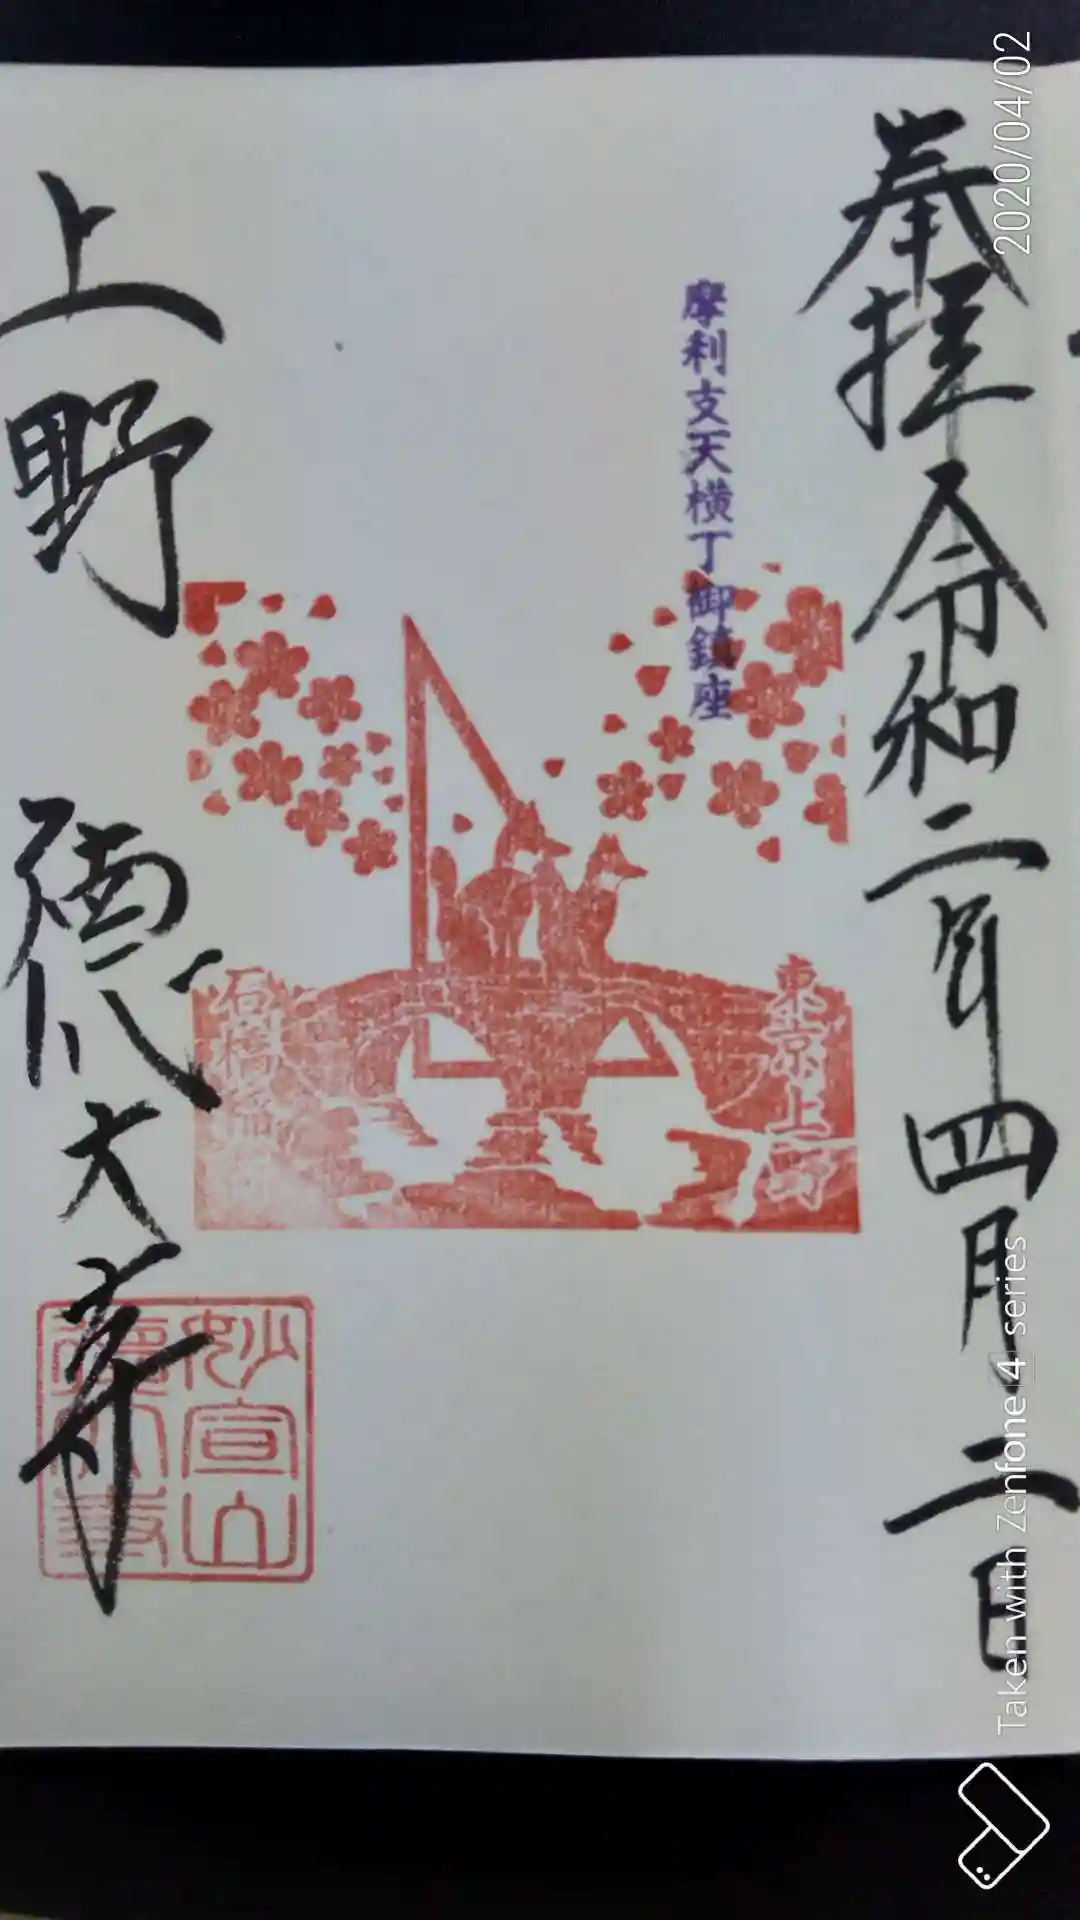 奉拝 令和二年四月二日
摩利支天横丁御鎮座
東京上野
石橋稲荷
上野 徳大寺
妙宣山
徳大寺
2020/04/02
Taken with Zenfone 4 series